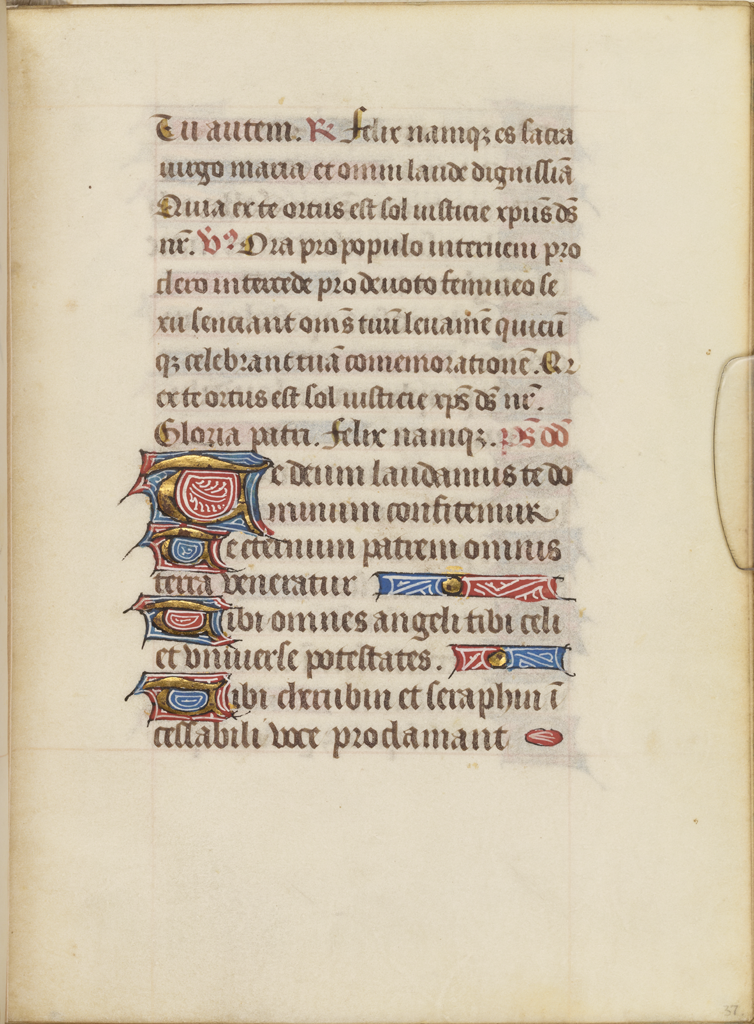 Tu autem. R. Felix namq; es sacra
uirgo maria et omni laude dignissiā
Quia ex te ortus est sol iusticie xpūs ds̄
nr̄. V? Ora pro populo interueni pro
clero intercede pro deuoto femineo se
xu senciant om̄s tuū leuamē quicū
q; celebrant tuā comemorationē. Qr
ex te ortus est sol iusticie xp̄s ds̄ nr̄.
Gloria patri. Felix namq;. ps̄ dd̄
Te deum laudamus te do
minum confitemur
Te eternum patrem omnis
terra veneratur
Tibi omnes angeli tibi celi
et vniuerse potestates.
Tibi cherubin et seraphin ī
cessabili voce proclamant
37